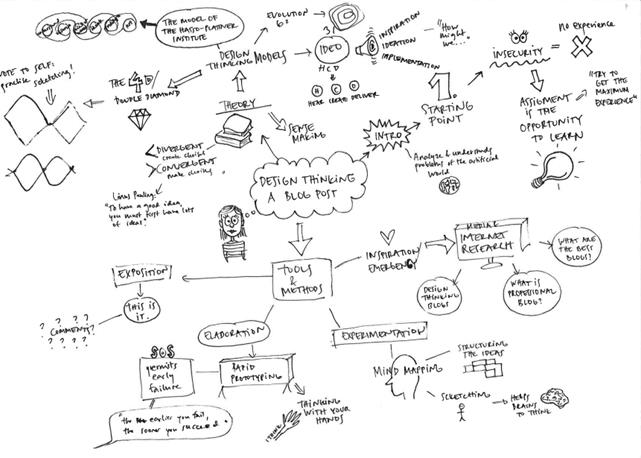 THE MODEL OF
THE HASSO-PLATTNER
INSTITUTE
EVOLUTION
6²
DESIGN
THINKING MODELS
3
IDEO
HCD
H C D
HEAR CREATE DELIVER
INSPIRATION
IDEATION
IMPLEMENTATION
"How
might
we..."
1.
STARTING
POINT
INSECURITY
=
no experience
ASSIGMENT
IS THE
OPPORTUNITY
TO LEARN
"TRY TO
GET THE
MAXIMUM
EXPERIENCE"
NOTE TO SELF:
practise sketching!
THE 4D/
DOUBLE DIAMOND
THEORY
SENSE
MAKING
< DIVERGENT
create choices
> CONVERGENT
make choices
Linus Pauling:
"To have a good idea,
you must first have lots
of ideas."
INTRO
Analyze & understands
problems of the artificial
world
DESIGN THINKING
A BLOG POST
TOOLS
&
METHODS
INSPIRATION
EMERGENCY
INTERNET
RESEARCH
WHAT ARE
THE BEST
BLOGS?
DESIGN
THINKING
BLOGS?
WHAT IS
PROFESSIONAL
BLOG?
EXPOSITION
THIS IS
IT.
? ? ? ?
COMMENTS?
? ? ? ?
ELABORATION
RAPID
PROTOTYPING
SOS
permits
early
failure
"the earlier you fail,
the sooner you succeed.
THINKING
WITH YOUR
HANDS
EXPERIMENTATION
MIND MAPPING
STRUCTURING
THE IDEAS
SKETCHING
HELPS
BRAINS
TO THINK